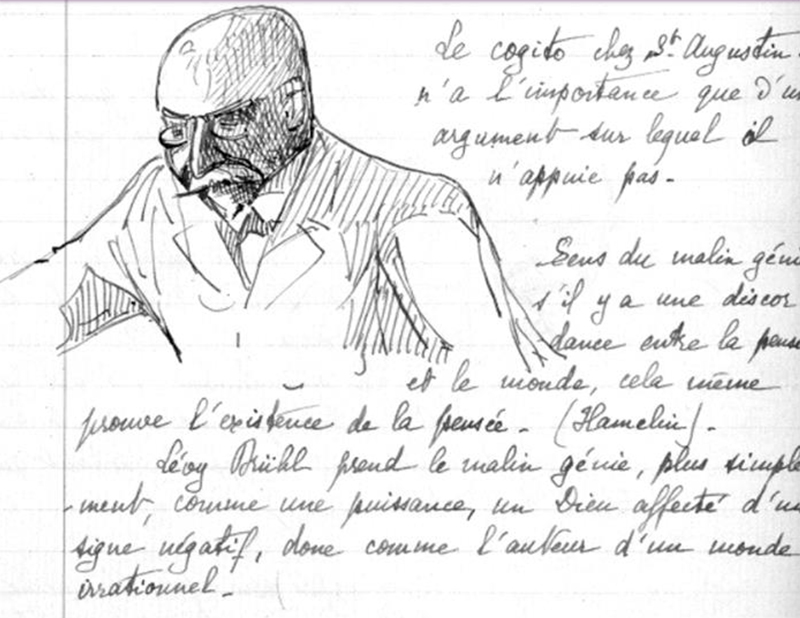 Le cogito chez St. Augustin.
n'a l'importance que d'un
argument sur lequel il
n'appuie pas.
Sens du malin génie
s'il y a une discor
dance entre la pensée
et le monde, cela même
prouve l'existence de la pensée. (Hamelin).
Lévy Brühl prend le malin génie, plus simple
-ment, comme une puissance, un Dieu affecté d'un
signe négatif, donc comme l'auteur d'un monde
irrationnel.